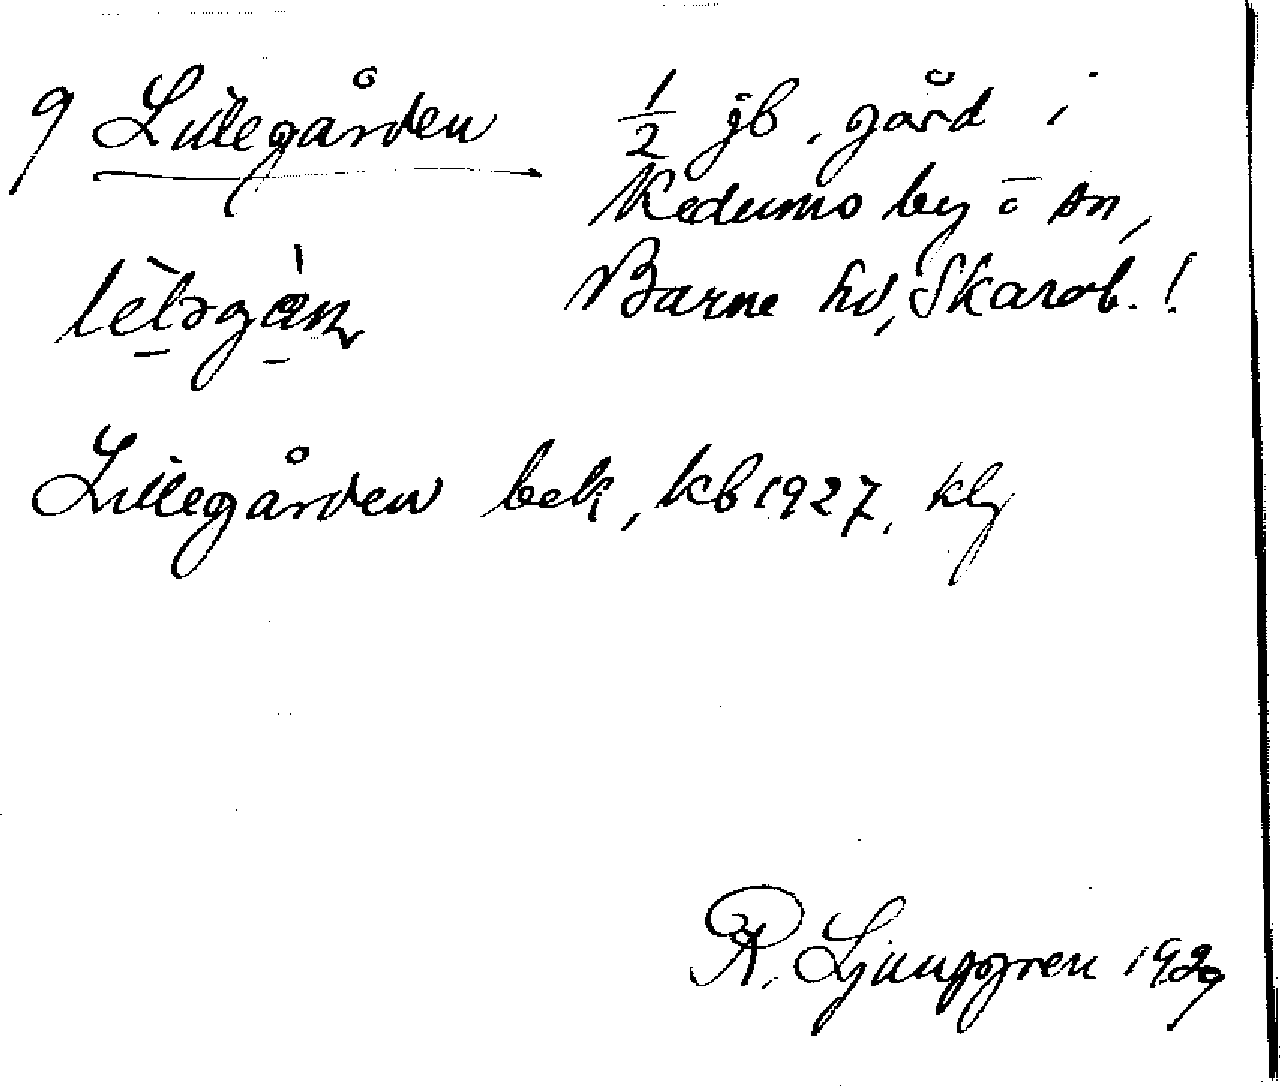 9 Lillegården ½ jb. gård i
Kedums by o sn,
lèləgàṇ Barne hd, Skarab.!
Lillegården bek, kb 1927, klj
R. Ljunggren 1929